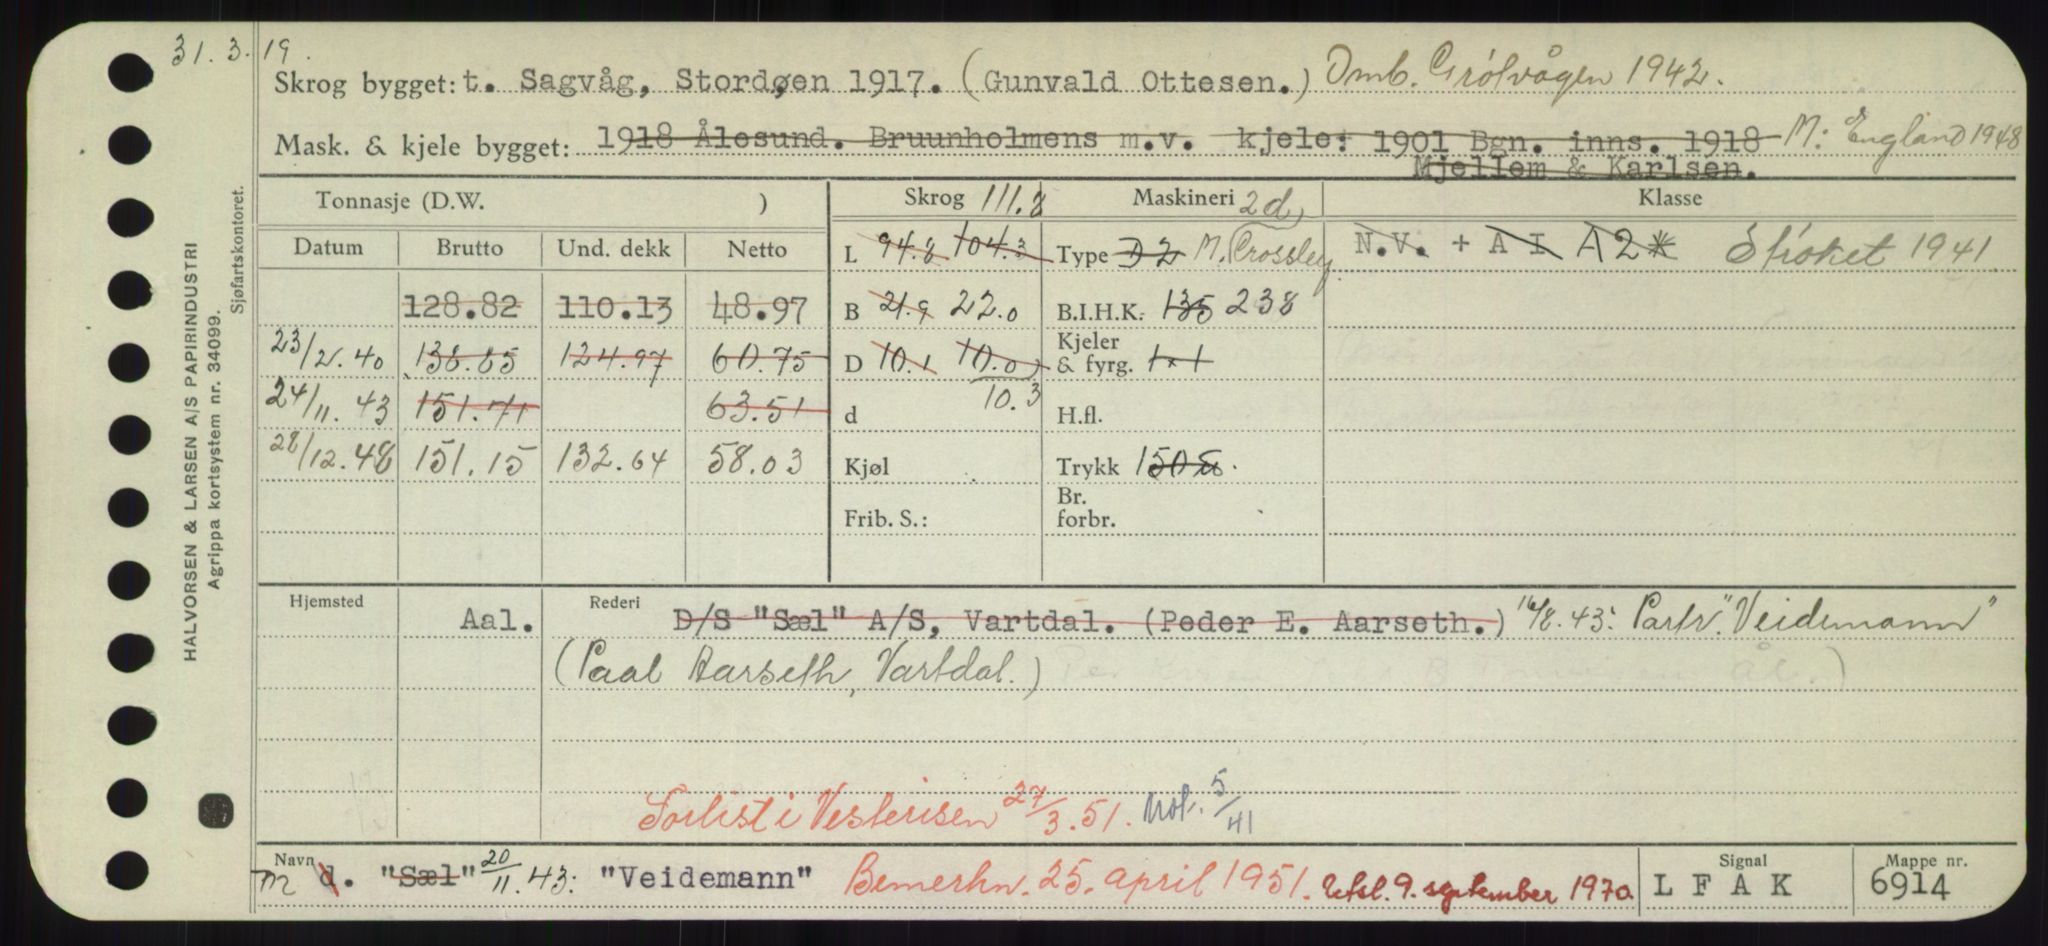 31. 3. 19.
Skrog bygget: t. Sagvåg, Stordøen 1917. (Gunvald Ottesen.) Omb. Grólvågen 1942.
Mask. & kjele bygget: 1918 Ålesund. Bruunholmens m.v. kjele: 1901 Bgn. inns. 1918 M: England 1948
Mjellem & Karlsen.
Tonnasje (D.W. ) Skrog 111.8 Maskineri 2d) Klasse
Datum Brutto Und. dekk Netto L 94.8 104.3 Type D 2 M. Crossley N.V. + A I A2* Strøket 1941.
128.82 110.13 48.97 B 21.9 22.0 B.I.H.K. 135 238
23/2.40 138.85 124.97 60.75 D 10.1 10.0) Kjeler & fyrg. 1x1
24/11.43 151.71 63.51 d 10.3 H.fl.
28/12.48 151.15 132.64 58.03 Kjøl Trykk 150
Frib. S.: Br. forbr.
Hjemsted Aal. Rederi D/S "Sæl" A/S, Vartdal. (Peder E. Aarseth.) 16/8.43: Partr. "Veidemann"
(Paal Aarseth, Vartdal.)
Forlist i Vesterisen 27/3.51. Not. 5/41
Navn m d. "Sæl" 20/11.43: "Veidemann" Bemerkn. 25. april 1951. Utsl. 9. september 1970. Signal L F A K Mappe nr. 6914
HALVORSEN & LARSEN A/S PAPIRINDUSTRI
Agrippa kortsystem nr. 34099.
Sjøfartskontoret.